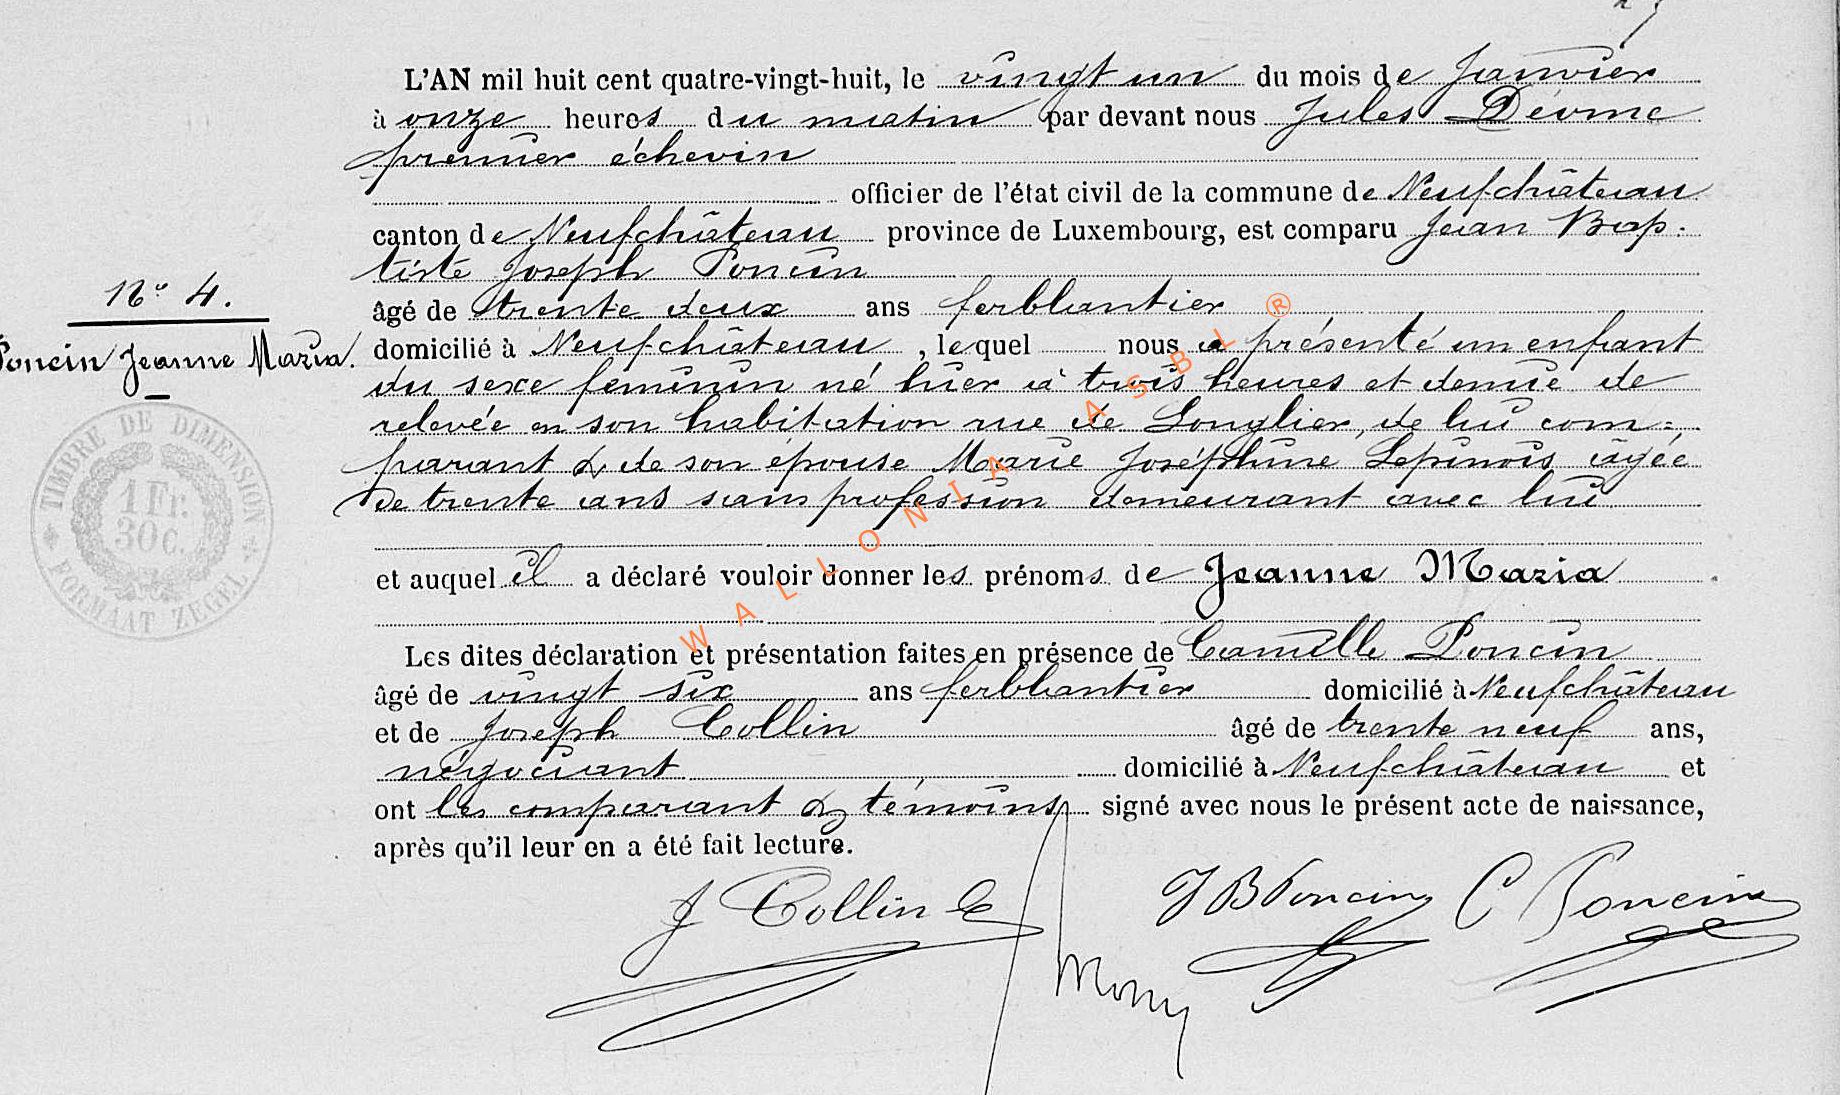 L'AN mil huit cent quatre-vingt-huit, le vingt un du mois de Janvier
à onze heures du matin par devant nous Jules
premier échevin
officier de l'état civil de la commune de Neufchâteau
canton de Neufchâteau province de Luxembourg, est comparu Jean Bap-
tiste Joseph Poncin
N° 4.
âgé de trente deux ans ferblantier
Poncin Jeanne Maria.
domicilié à Neufchâteau, lequel nous a présenté un enfant
du sexe féminin né hier à trois heures et demie de
relevée en son habitation rue de Longlier, de lui com=
parant & de son épouse Marie Joséphine Lepinois âgée
de trente ans sans profession demeurant avec lui
TIMBRE DE DIMENSION
1 Fr.
30 C.
FORMAAT ZEGEL
et auquel il a déclaré vouloir donner les prénoms de Jeanne Maria.
Les dites déclaration et présentation faites en présence de Camille Poncin
âgé de vingt six ans ferblantier domicilié à Neufchâteau
et de Joseph Collin âgé de trente neuf ans,
négociant domicilié à Neufchâteau et
ont les comparant & témoins signé avec nous le présent acte de naissance,
après qu'il leur en a été fait lecture.
J Collin JB Poncin C Poncin
WALLONIA ASBL ®